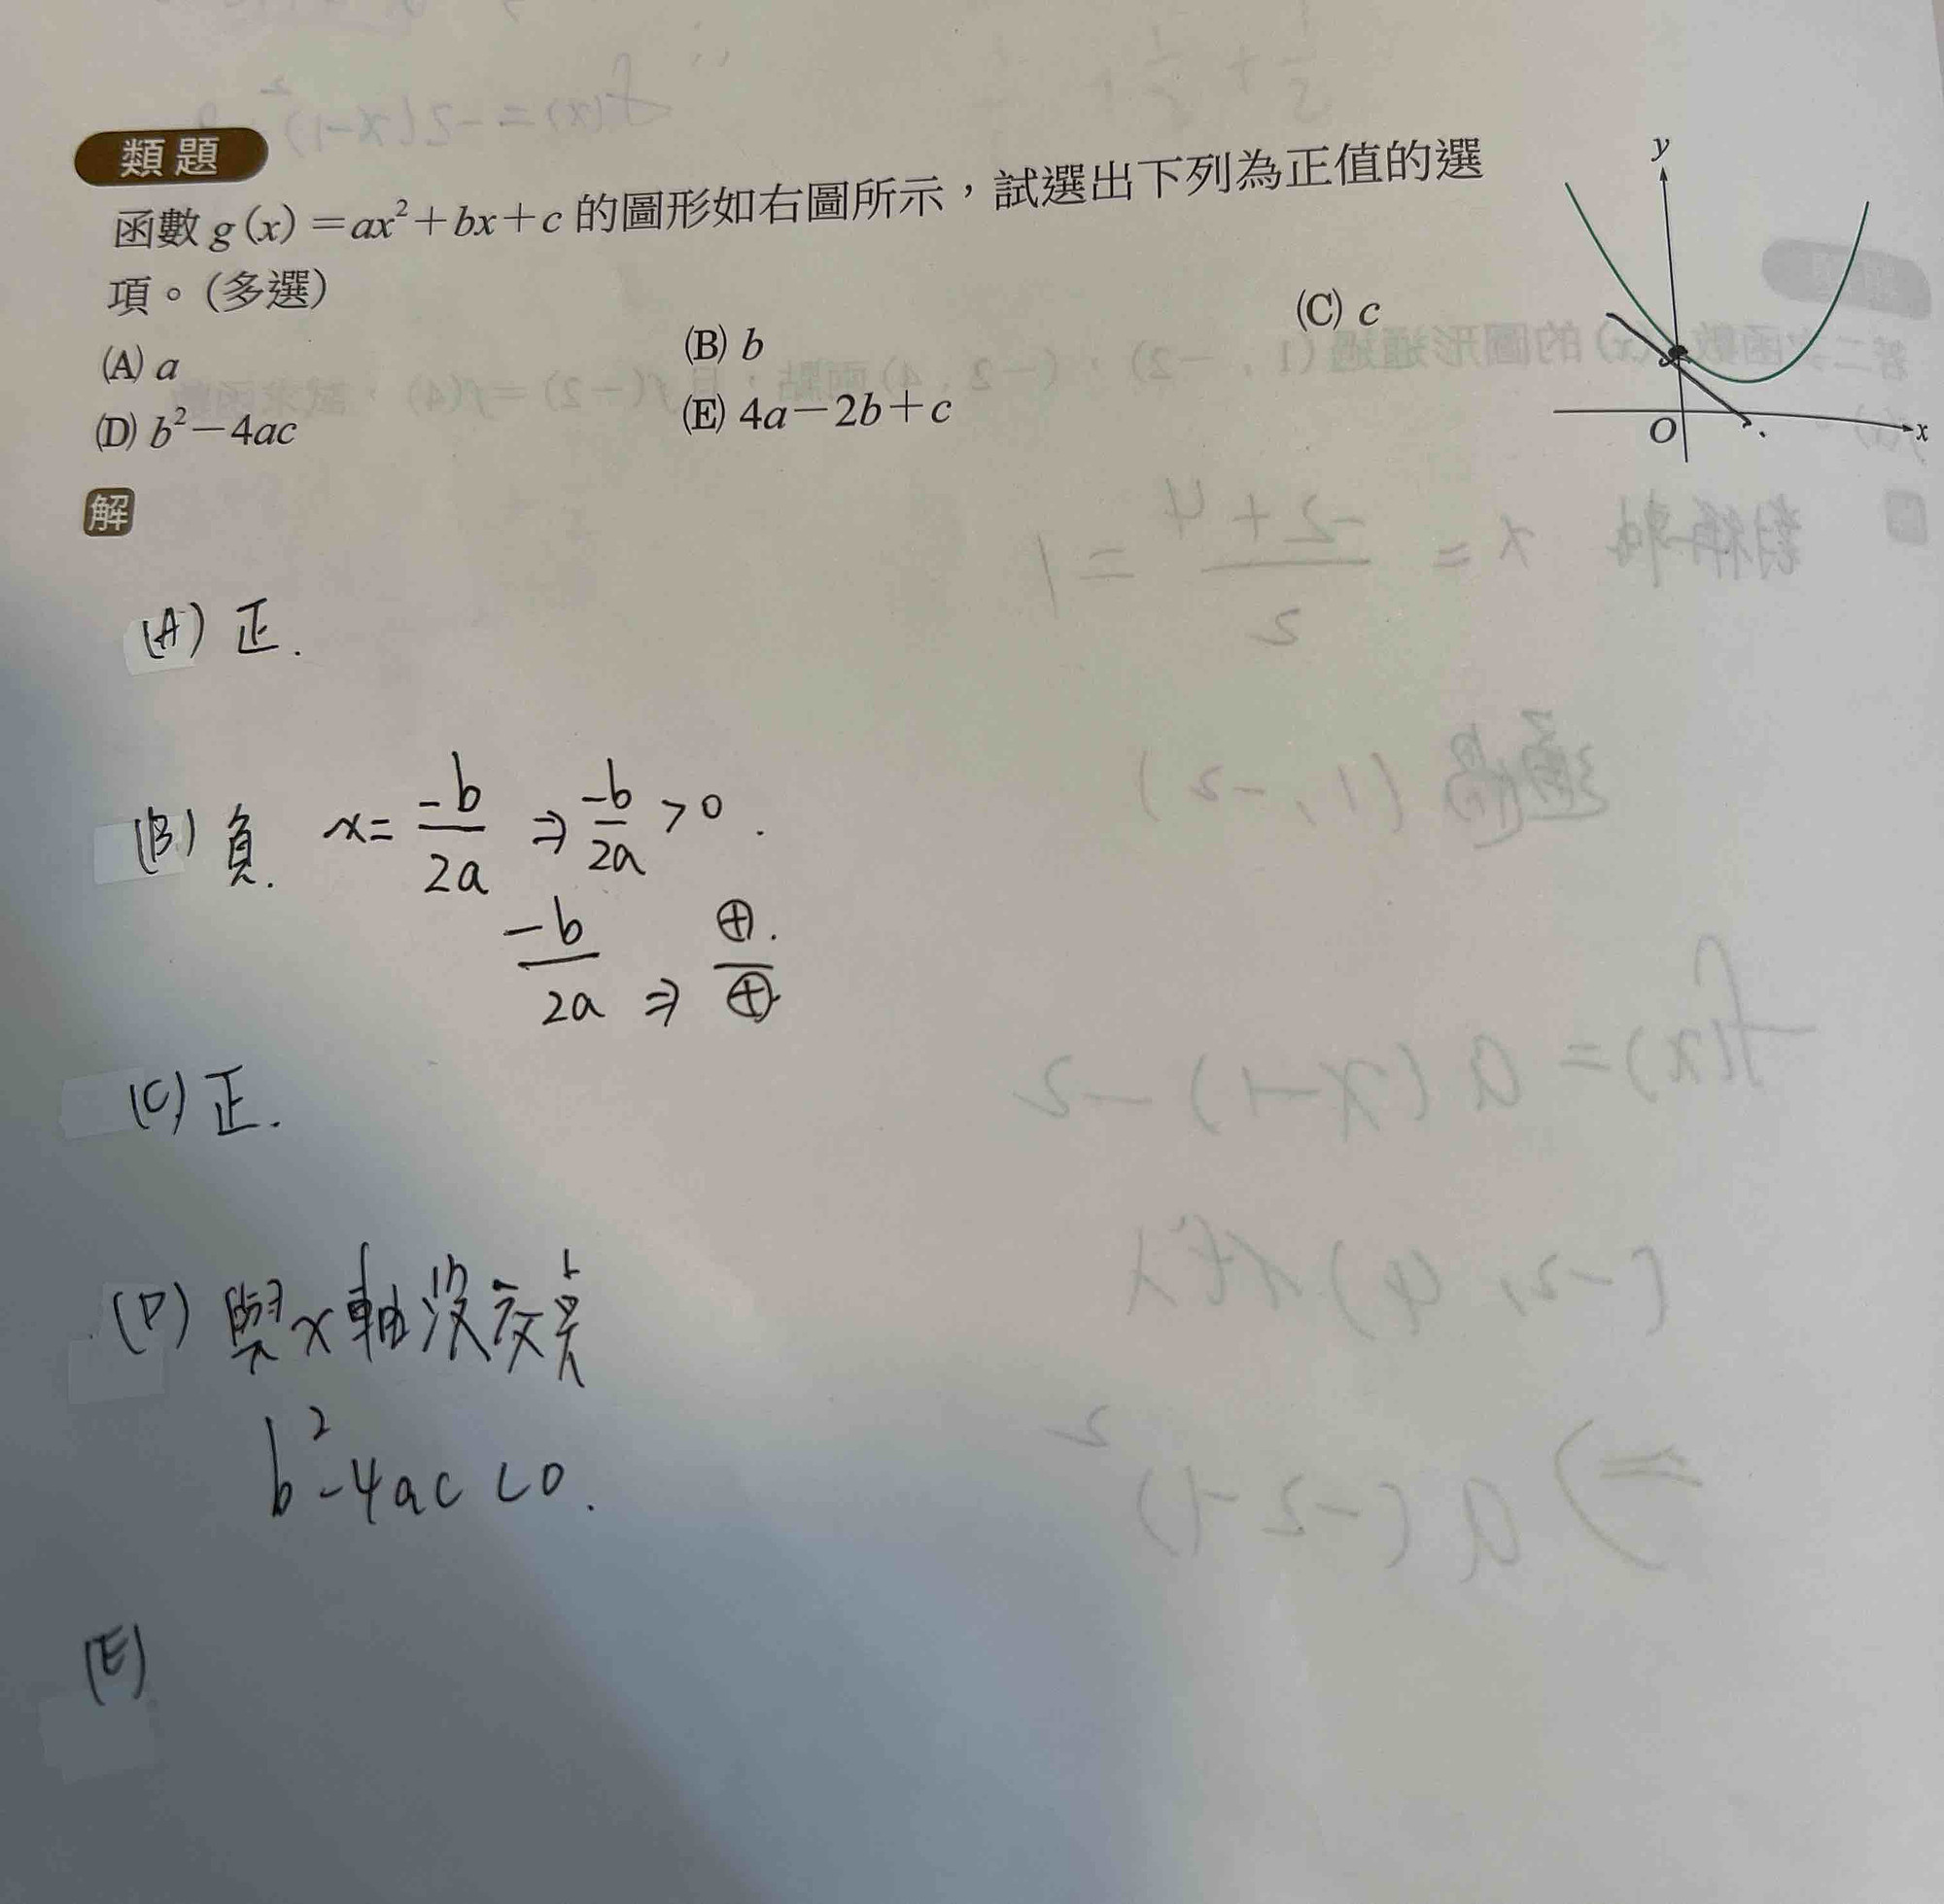 類題
函數 g(x)=ax²+bx+c 的圖形如右圖所示，試選出下列為正值的選
項。(多選)
(A) a
(B) b
(C) c
(D) b²-4ac
(E) 4a-2b+c
y
O
x
解
(A) 正.
(B) 負. x= -b/2a ⇒ -b/2a >0.
-b/2a ⇒ ⊕./⊕
(C) 正.
(D) 與x軸沒交點
b²-4ac<0.
(E)